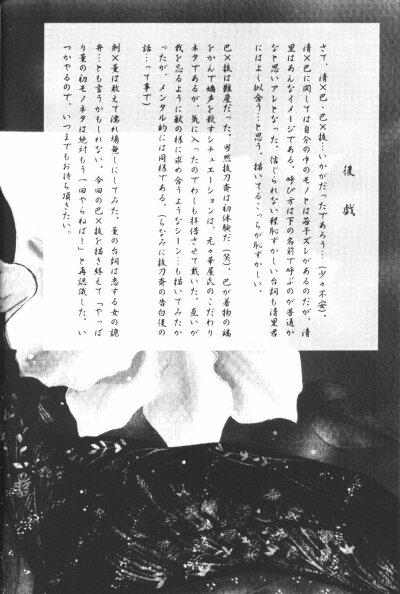 後戯
さて、清×巴、巴×抜…いかがだったであろう…(少々不安)。
清×巴に関しては自分の中のモノとは若干ズレがあるのだが、清
里はあんなイメージである。呼び方は下の名前で呼ぶのが普通か
なと思いアレとなった。信じられない程恥ずかしい台詞も清里君
にはよく似合う…と思う。描いてるこっちが恥ずかしい。
巴×抜は難産だった。当然抜刀斎は初体験だ(笑)。巴が着物の端
をかんで嬌声を殺すシチュエーションは、元々華屋氏のこだわり
ネタであるが、気に入ったのでわしも拝借させて戴いた。互いが
我を忘るように獣の様に求め合うようなシーン…も描いてみたか
ったが、メンタル的には同様である。(ちなみに抜刀斎の告白後の
話…って事で)
剣×薫は敢えて濡れ場無しにしてみた。薫の台詞は恋する女の詭
弁…とも言うかもしれない。今回の巴×抜を描き終えて「やっぱ
り薫の初モノネタは絶対もう一回やらねば!」と再認識した。い
つかやるので、いつまでもお待ち頂きたい。